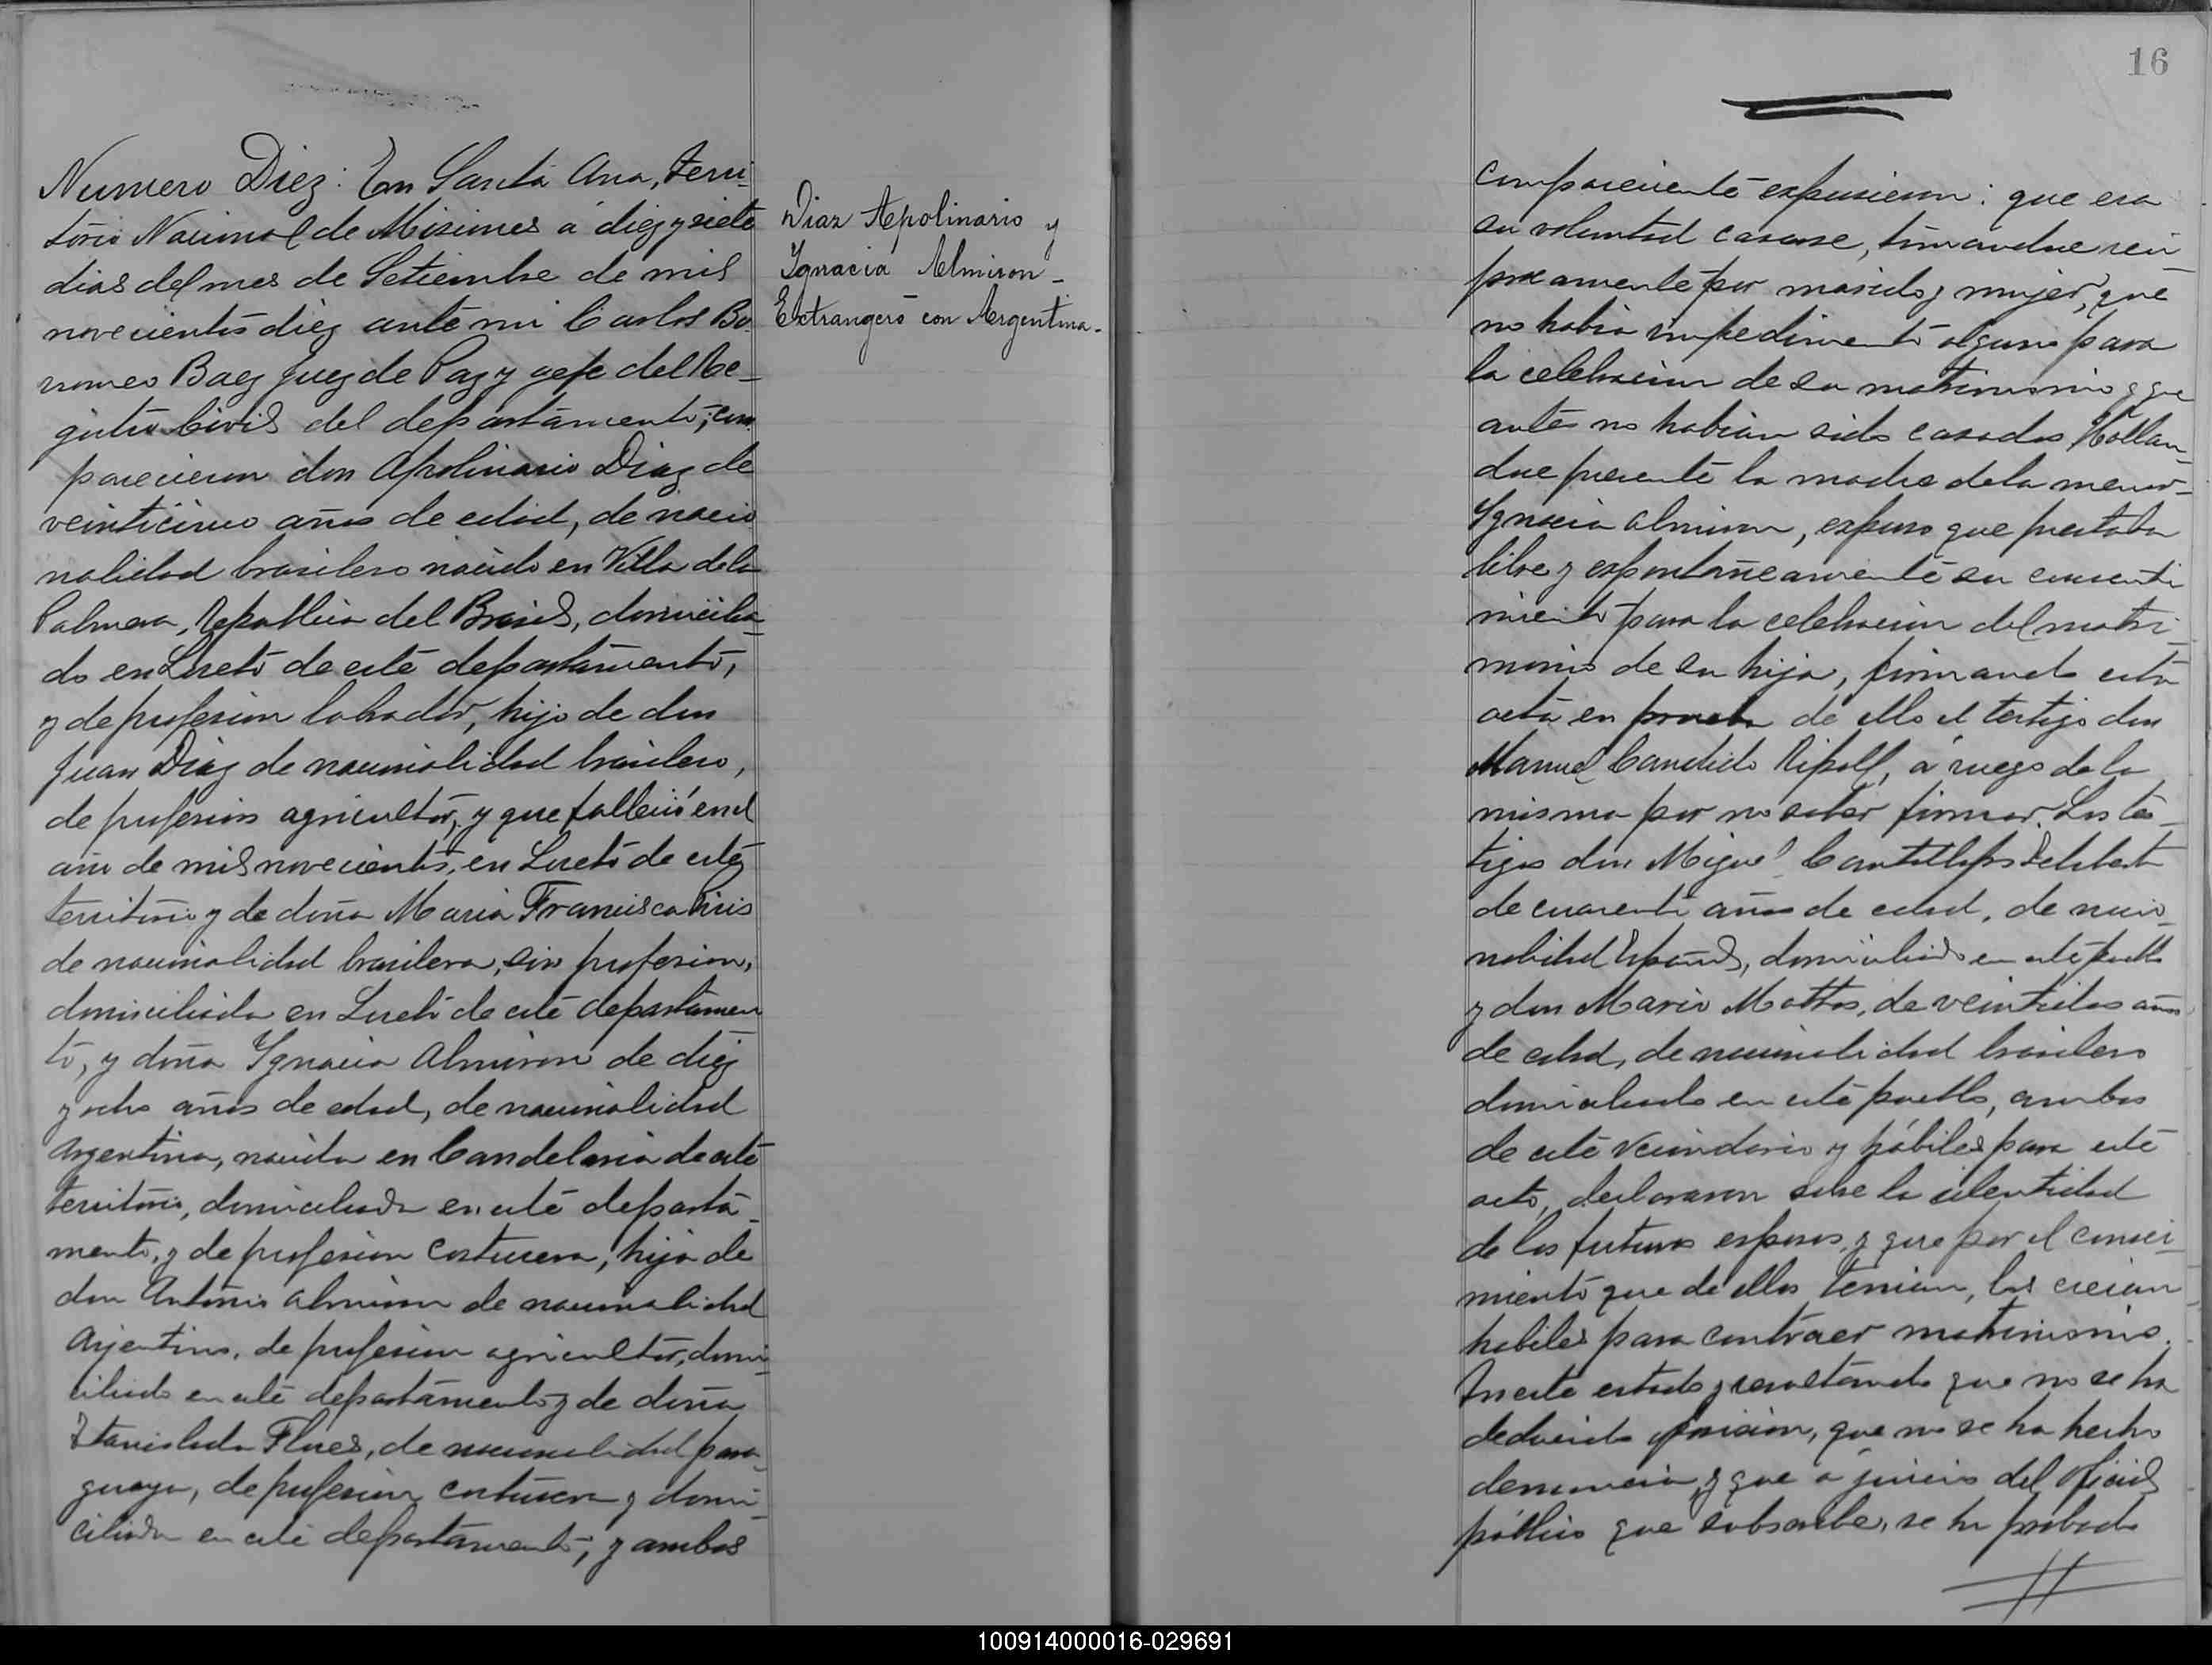 Numero Diez: En Santa Ana, Terri-
torio Nacional de Misiones a diez y siete
dias del mes de Setiembre de mil
novecientos diez ante mi Carlos Bo-
rromeo Baez Juez de Paz y gefe del Re-
gistro Civil del departamento; com-
parecieron don Apolinario Diaz de
veinticinco años de edad, de nacio
nalidad brasilero nacido en Villa de la
Palmera, Republica del Brasil, domicilia-
do en Loreto de este departamento,
y de profesion labrador, hijo de don
Juan Diaz de nacionalidad brasilero,
de profesion agricultor, y que falleció en el
año de mil novecientos, en Loreto de este
territorio y de doña Maria Francisca
de nacionalidad brasilera, sin profesion,
domiciliada en Loreto de este departamen
to, y doña Ygnacia Almiron de diez
y ocho años de edad, de nacionalidad
Argentina, nacida en Candelaria de este
territorio, domiciliada en este departa-
mento, y de profesion costurera, hija de
don Antonio Almiron de nacionalidad
Arjentino, de profesion agricultor, domi-
ciliado en este departamento y de doña
Flores, de nacionalidad para-
guaya, de profesion costurera y domi-
ciliada en este departamento; y ambos
Diaz Apolinario y
Ygnacia Almiron -
Extrangero con Argentina.
16
compareciente expusieron: que era
su voluntad casarse, tomandose reci
procamente por marido y mujer, que
no habia impedimento alguno para
la celebracion de su matrimonio y que
antes no habian sido casados Hallan-
dose presente la madre de la menor
Ygnacia Almiron, expuso que prestaba
libre y espontañeamente su consenti
miento para la celebracion del matri-
monio de su hija, firmando esta
acta en prueba de ello el testigo don
Manuel Candido Ripoll, a ruego de la
misma por no saber firmar. Los tes-
tigos don Miguel
de cuarenta años de edad, de nacio-
nalidad Español, domiciliado en este pueblo
y don Mario Mattos, de veintidos años
de edad, de nacionalidad brasilero
domiciliado en este pueblo, ambos
de este vecindario y hábiles para este
acto, declararon sobre la identidad
de los futuros esposos, y que por el conoci-
miento que de ellos tenian, los creian
habiles para contraer matrimonio.
En este estado y resultando que no se ha
deducido oposicion, que no se ha hecho
denuncia, y que a juicio del oficial
público que subscribe, se ha probado
100914000016-029691